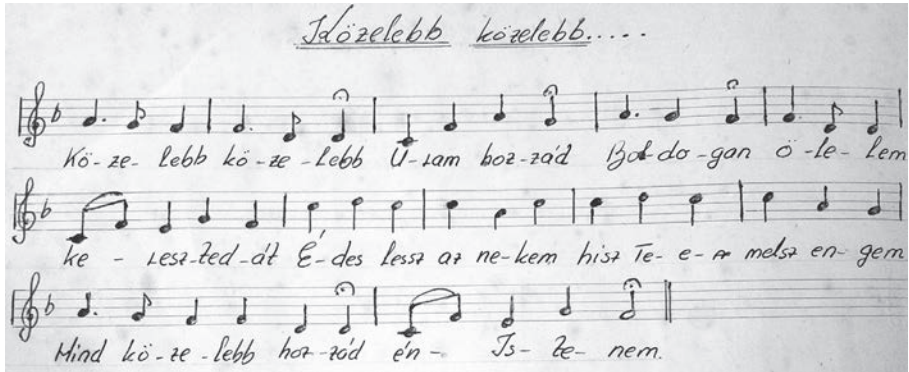 Közelebb közelebb.....
Kö-ze-lebb kö-ze-lebb U-ram hoz-zád Bol-do-gan ö-le-lem
ke-resz-ted-át É-des lessz az ne-kem hisz Te-e- melsz en-gem
Mind kö-ze-lebb hoz-zád én- Is-te-nem.